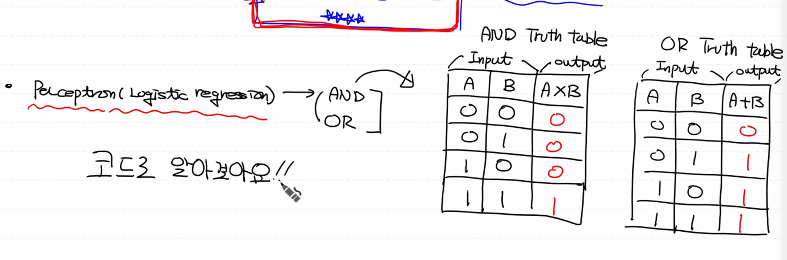 • Perceptron(Logistic regression) → (AND
OR]
코드로 알아보아요!!
AND Truth table
Input output
A B A×B
0 0 0
0 1 0
1 0 0
1 1 1
OR Truth table
Input output
A B A+B
0 0 0
0 1 1
1 0 1
1 1 1